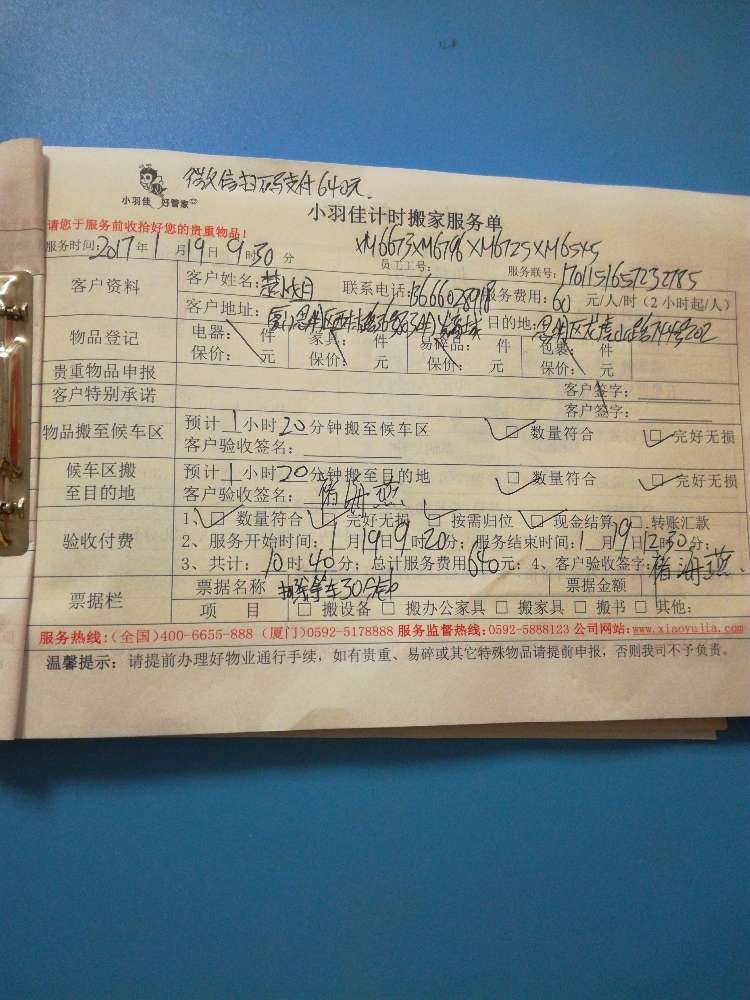 微信扫码支付640元.
小羽佳 好管家
小羽佳计时搬家服务单
请您于服务前收拾好您的贵重物品!
XM6673XM6798XM6725XM6545
服务时间:2017年1月19日9时30分 员工工号: 服务联号:1701151657232785
客户资料 客户姓名: 联系电话: 服务费用:60元/人/时(2小时起/人)
客户地址: 目的地:
物品登记 电器: 件 家具: 件 易碎品: 件 包裹: 件
保价: 元 保价: 元 保价: 元 保价: 元
贵重物品申报 客户签字:
客户特别承诺 客户签字:
物品搬至候车区 预计1小时20分钟搬至候车区 ☑数量符合 ☑完好无损
客户验收签名:
候车区搬至目的地 预计1小时20分钟搬至目的地 ☑数量符合 ☑完好无损
客户验收签名: 海燕
验收付费 1、☑数量符合 ☑完好无损 ☑按需归位 ☑现金结算 □转账汇款
2、服务开始时间:1月19日9时20分;服务结束时间:1月19日12时30分;
3、共计:10时40分;总计服务费用640元;4、客户验收签字: 海燕
票据栏 票据名称 等车30分钟 票据金额
项 目 □搬设备 □搬办公家具 □搬家具 □搬书 □其他:
服务热线:(全国)400-6655-888 (厦门)0592-5178888 服务监督热线:0592-5888123 公司网站:www.xiaoyujia.com
温馨提示:请提前办理好物业通行手续,如有贵重、易碎或其它特殊物品请提前申报,否则我司不予负责。